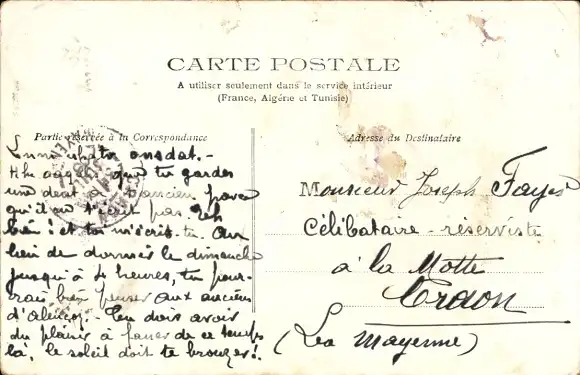 CARTE POSTALE
A utiliser seulement dans le service intérieur
(France, Algérie et Tunisie)
Partie réservée à la Correspondance
Adresse du Destinataire
que tu gardes
une dent à ancien parce
qu'il ne t'écrit pas. Eh
bien ! et toi m'écris-tu. Au
lieu de dormir le dimanche
jusqu'à 4 heures, tu pour-
rais bien penser aux anciens
d'Alençon. Tu dois avoir
du plaisir à faner de ce temps
là, le soleil doit te bronzer !
Monsieur Joseph
Célibataire - réserviste
à la Motte
Craon
(La Mayenne)